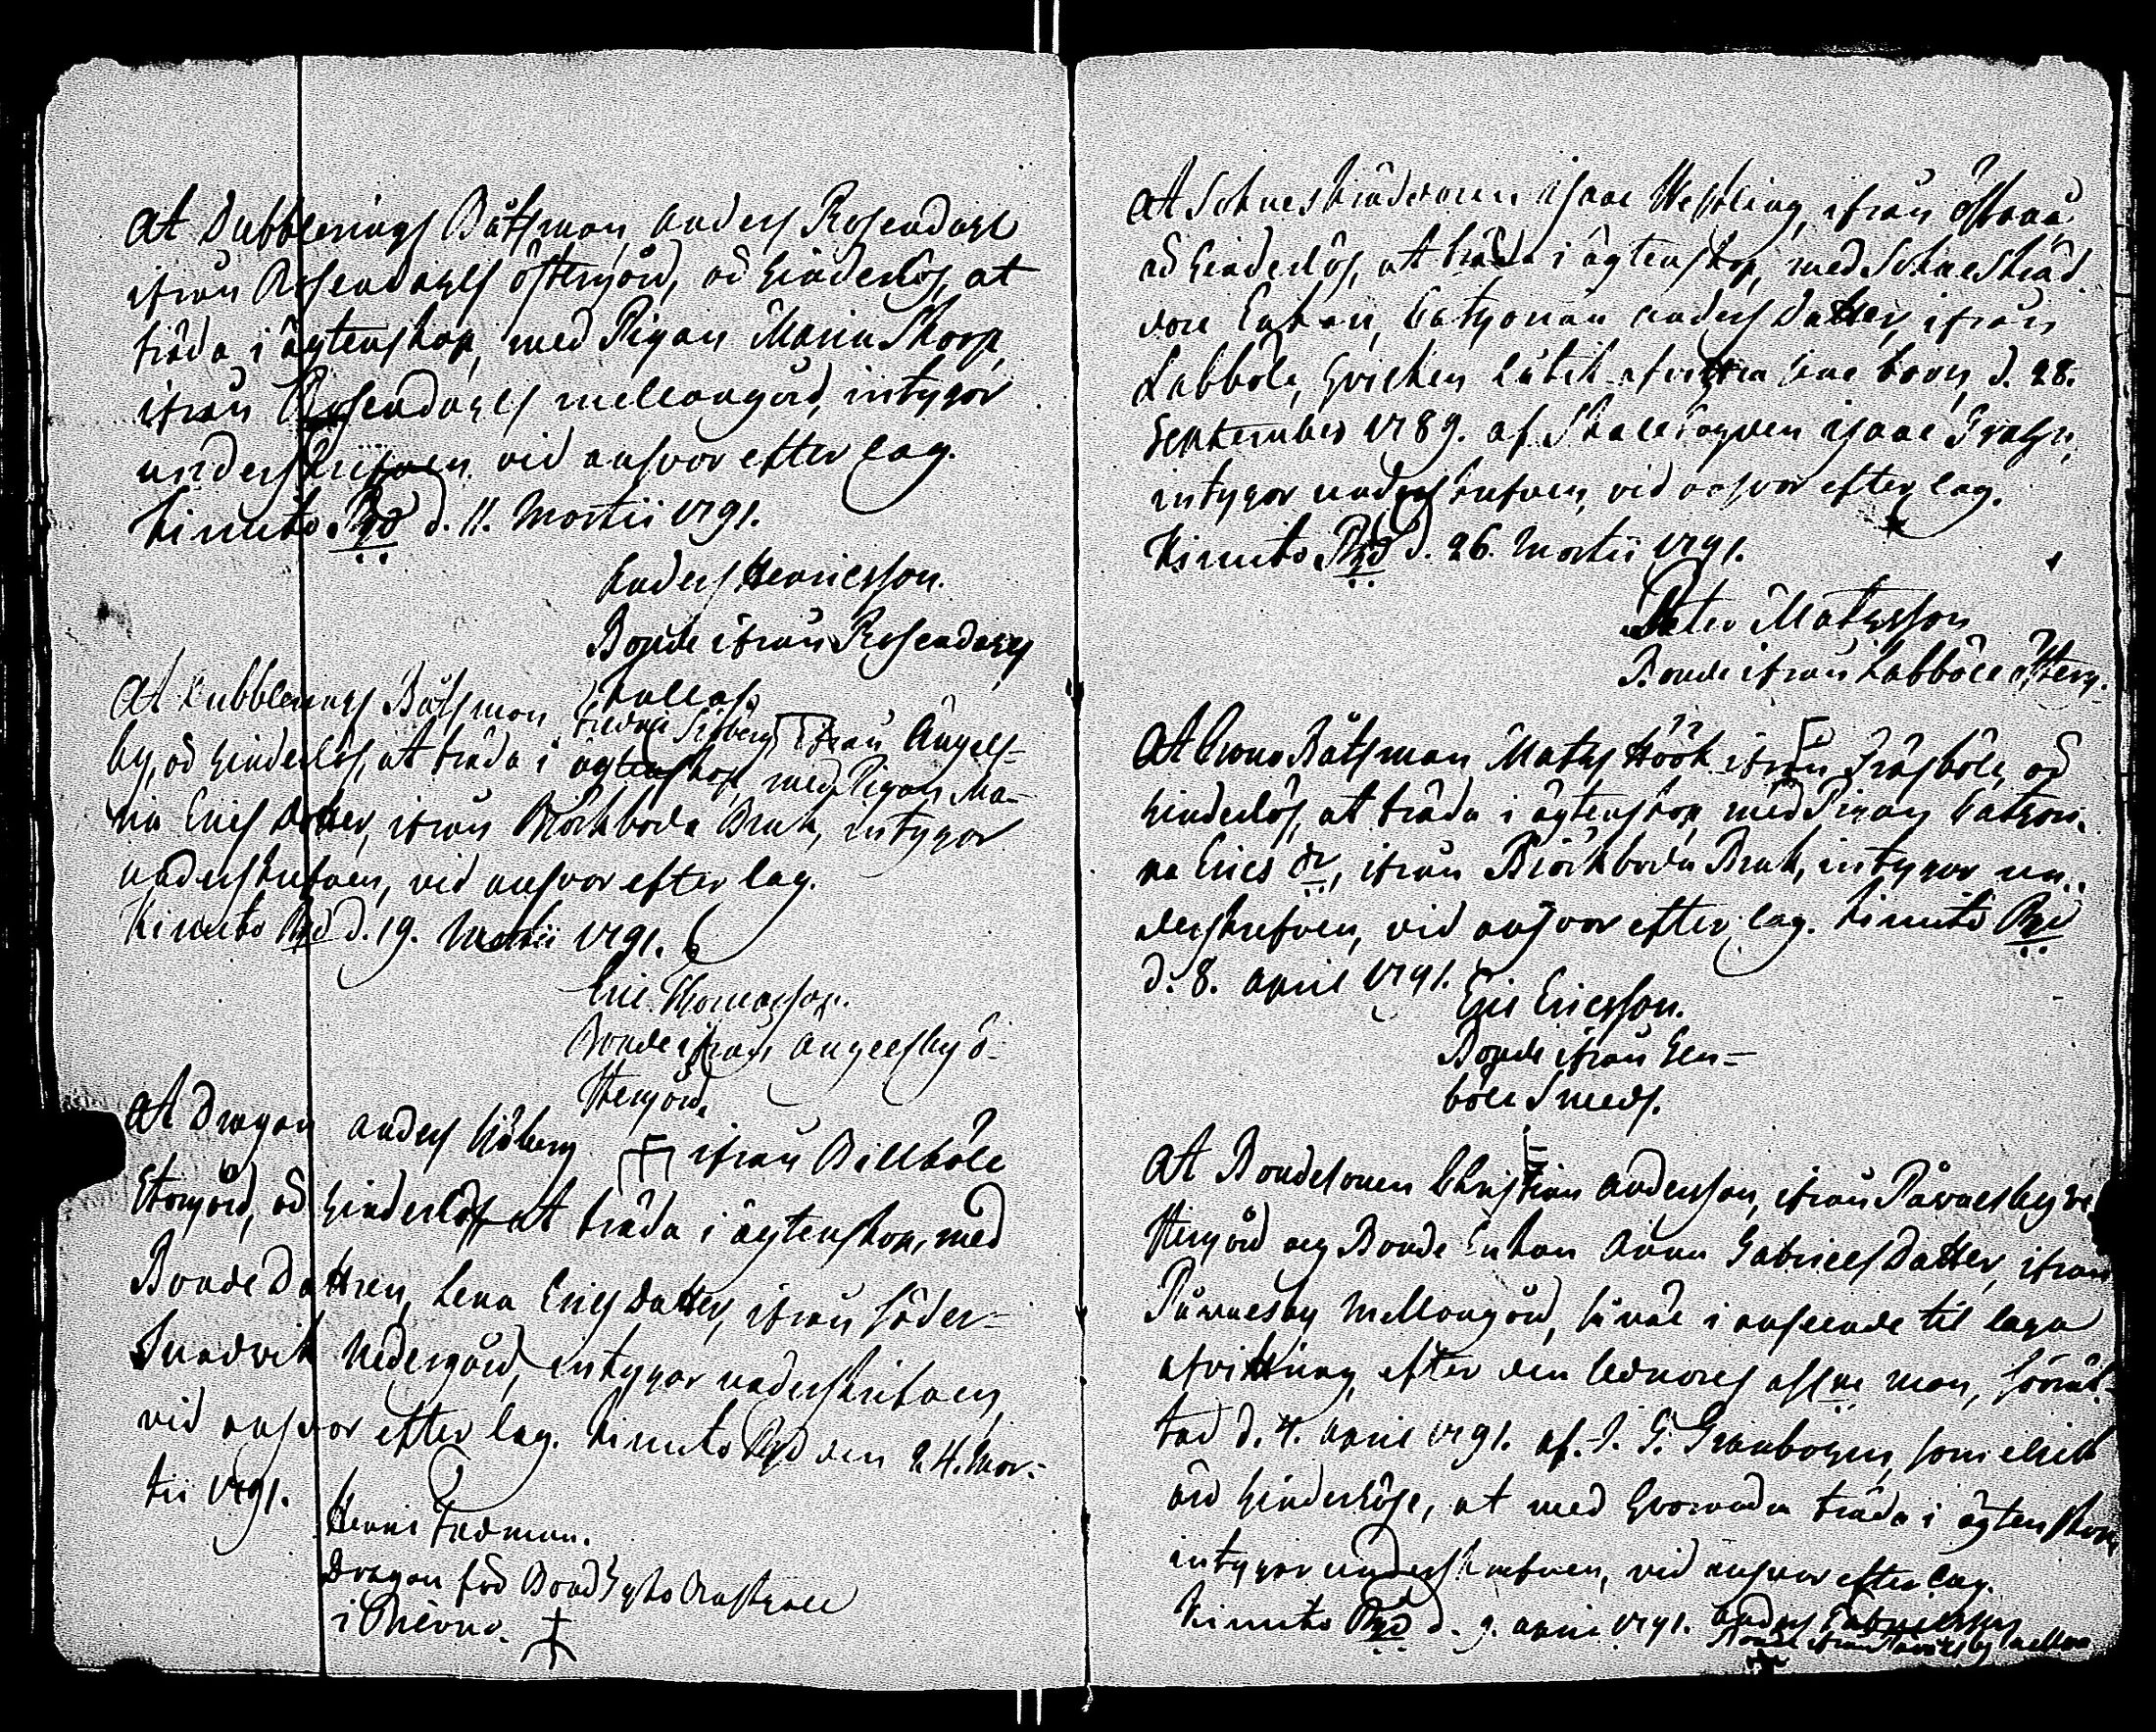 At Dubblerings Båtsman Anders Rosendahl
ifrån Rosendahls östergård, är hinderlös, at
träda i ägtenskap, med Pigan Maria Skarp,
ifrån Rosendahls mellangård, intygar
underskrifven, vid answar efter lag.
Kimito Pgd d. 11. Martii 1791.
Anders Henricsson.
Bonde ifrån Rosendahls
Kallas.
At Dubblerings Båtsman Fredric Siöberg ifrån Ängels-
by, är hinderlös, at träda i ägtenskap, med Pigan Ma-
ria Erics Dotter, ifrån Björkboda Bruk, intygar
underskrefven, vid answar efter lag.
Kimito Pgd d. 19. Martii 1791.
Eric Thomasson.
Bonde ifrån Angelsby ö-
stergård.
At Dragon Anders Siöberg ifrån Billböle
Storgård, är hinderlös at träda i ägtenskap, med
Bonde Dottren, Lena Erics Dotter, ifrån Söder-
Sundvik Nedergård, intygar underskrifven,
vid answar efter lag. Kimito Pgd den 24. Mar-
tii 1791.
Henric Fredman.
Dragon för
i
At Sockneskräddaren Isaac Westling, ifrån
är hinderlös, at träda i ägtenskap, med Sockneskräd-
dare Enkan, Catharina Anders Dotter, ifrån
Labböle, hvilken låtit afvittra sine barn, d. 28.
September 1789. af Skallfogden Isaac
intygar underskrefven, vid answar efter lag.
Kimito Pgd d. 26. Martii 1791.
Peter Matsson
Bonde ifrån Labböle österg.
At Crono Båtsman Mats Höök ifrån Träsböle, är
hinderlös, at träda i ägtenskap, med Pigan Cathari-
na Erics dr, ifrån Björkboda Bruk, intygar un-
derskrefven, vid answar efter lag. Kimito Pgd
d. 8. April 1791.
Eric Ericsson.
Bonde ifrån Gen-
böle Smeds.
At Bondesonen Christian Andersson, ifrån Påvalsby ve-
stergård och Bonde Enkan Anna Gabriels Dotter, ifrån
Påvalsby Mellangård, såväl i anseende til laga
afvittring, efter den sednares afledne man, förrät-
tad d. 4. April 1791. af. I. G. Granbohm, som elliest
äro hinderlöse, at med hvarandra träda i ägtenskap,
intygar underskrefven, vid answar efter lag.
Kimito Pgd d. 9. April 1791. Anders Gabrielsson
Bonde ifrån Påvalsby mellan